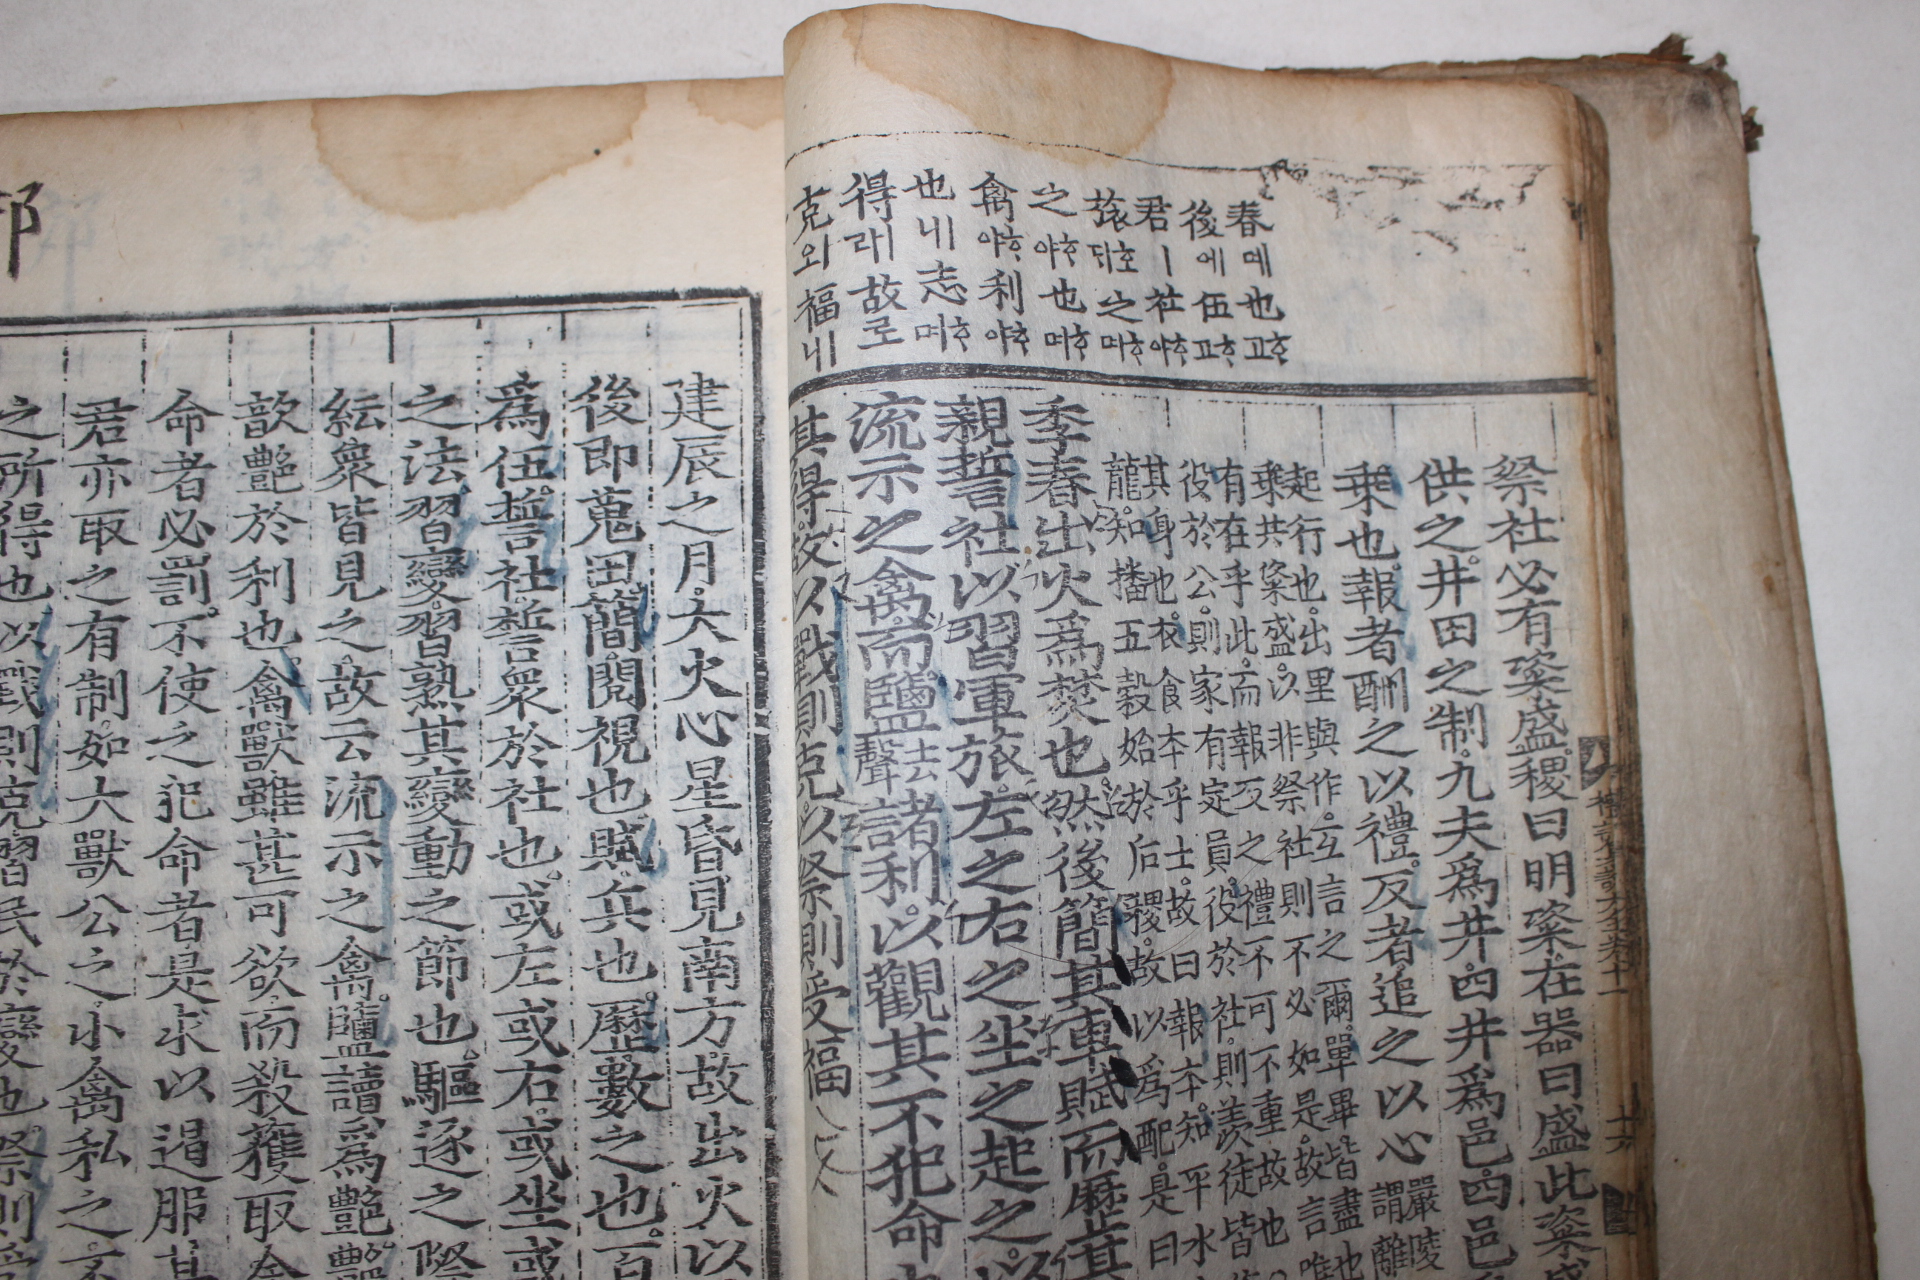 春메也ᄒᆞ고
後에伍ᄒᆞ고
君ㅣ社ᄒᆞ야
旅호ᄃᆡ之ᄒᆞ며
之ᄒᆞ야也ᄒᆞ며
禽ᄒᆞ야利ᄒᆞ야
也니志ᄒᆞ며
得래故로
克외福니
祭社必有粢盛稷曰明粢在器曰盛此粢
供之井田之制九夫爲井四井爲邑四邑
乘也報者酬之以禮反者追之以心
嚴陵
謂離
起行也出里與作互言之爾單畢皆盡也
乘共粢盛以非祭社則不必如是故言唯
有在乎此而報反之禮不可不重故也
役於公則家有定員役於社則羨徒皆
其身也衣食本乎土故曰報本知平水
龍知播五穀始於后稷故以爲配是曰
季春出火爲焚也然後簡其車賦而歷其
親誓社以習軍旅左之右之坐之起之以
流示之禽而鹽去聲諸利以觀其不犯命
其得故以戰則克以祭則受福
建辰之月大火心星昏見南方故出火以
後即蒐田簡閱視也賦兵也歷數之也百
爲伍誓社誓衆於社也或左或右或坐或
之法習變習熟其變動之節也驅逐之際
紜衆皆見之故云流示之禽鹽讀爲艶艶
歆艶於利也禽獸雖甚可欲而殺獲取舍
命者必罰不使之犯命者是求以遏服其
君亦取之有制如大獸公之小禽私之不
之所得也以戰則克習民於變也祭則受